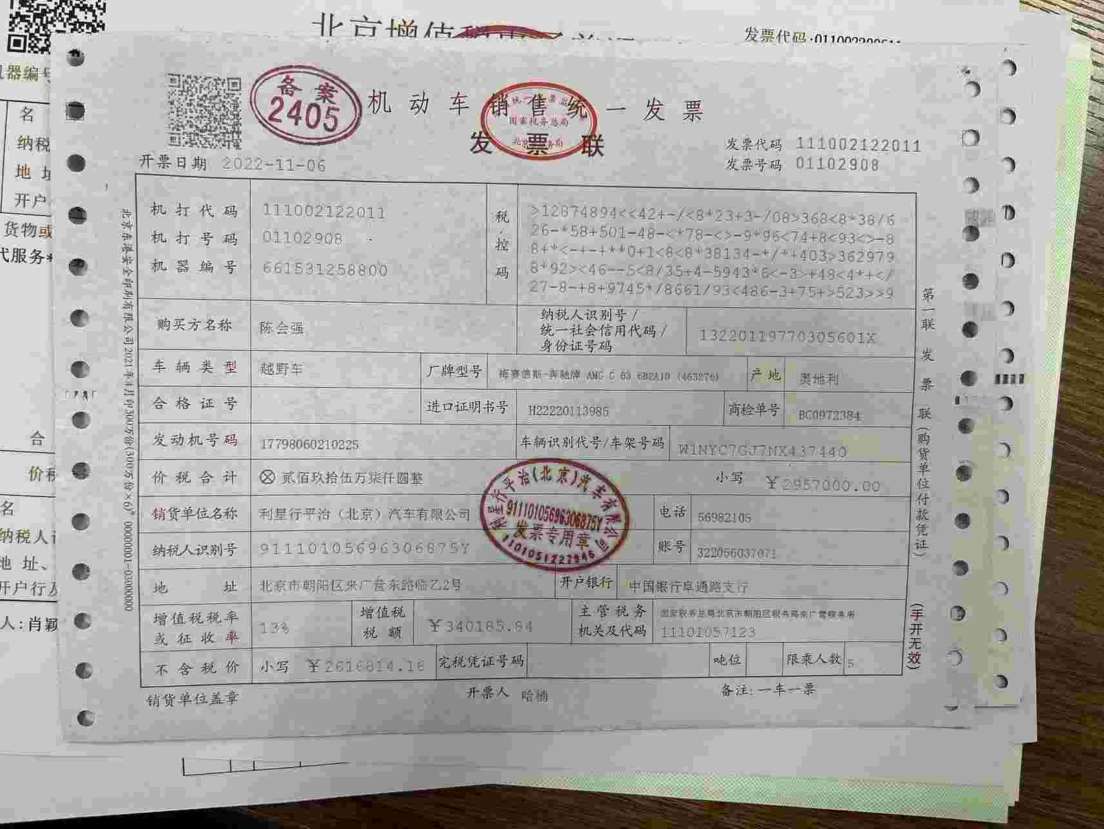 北京增值税
发票代码:011002200511
机器编号
名
纳税
地 址
开户
货物或
代服务*
合
价税
名
纳税人识
地 址、
开户行及
人:肖颖
备案
2405
机动车销售统一发票
发票联
统一发票监
国家税务总局
北京 务局
发票代码 111002122011
发票号码 01102908
开票日期 2022-11-06
机打代码 111002122011
机打号码 01102908
机器编号 661531258800
税控码
>12874894<<42+-/<8*23+3-/08>368<8*38/6
26-*58+501-48-<*78-<>-9*96<74+8<93<>-8
8+*<-+-+**0+1<8<8*38134-*/*+403>362979
8*92><46--5<8/35+4-5943*6<-3>+49<4*+</
27-8-+8+9745*/8661/93<486-3+75+>523>>9
购买方名称 陈会强
纳税人识别号/
统一社会信用代码/
身份证号码
13220119770305601X
车辆类型 越野车 厂牌型号 梅赛德斯-奔驰牌 AMG G 63 6B2A1D (463276) 产地 奥地利
合格证号 进口证明书号 H22220113985 商检单号 BC0972384
发动机号码 17798060210225 车辆识别代号/车架号码 W1NYC7GJ7NX437440
价税合计 ⊗ 贰佰玖拾伍万柒仟圆整 小写 ¥2957000.00
销货单位名称 利星行平治（北京）汽车有限公司 电话 56982105
纳税人识别号 91110105696306875Y 账号 322056037071
地 址 北京市朝阳区来广营东路临乙2号 开户银行 中国银行阜通路支行
增值税税率或征收率 13% 增值税税额 ¥340185.84 主管税务机关及代码 国家税务总局北京市朝阳区税务局来广营税务所
11101057123
不含税价 小写 ¥2616814.16 完税凭证号码 吨位 限乘人数 5
销货单位盖章 开票人 哈楠 备注:一车一票
利星行平治(北京)汽车有限公司
91110105696306875Y
发票专用章
1101051227946
第一联 发票联(购货单位付款凭证)
(手开无效)